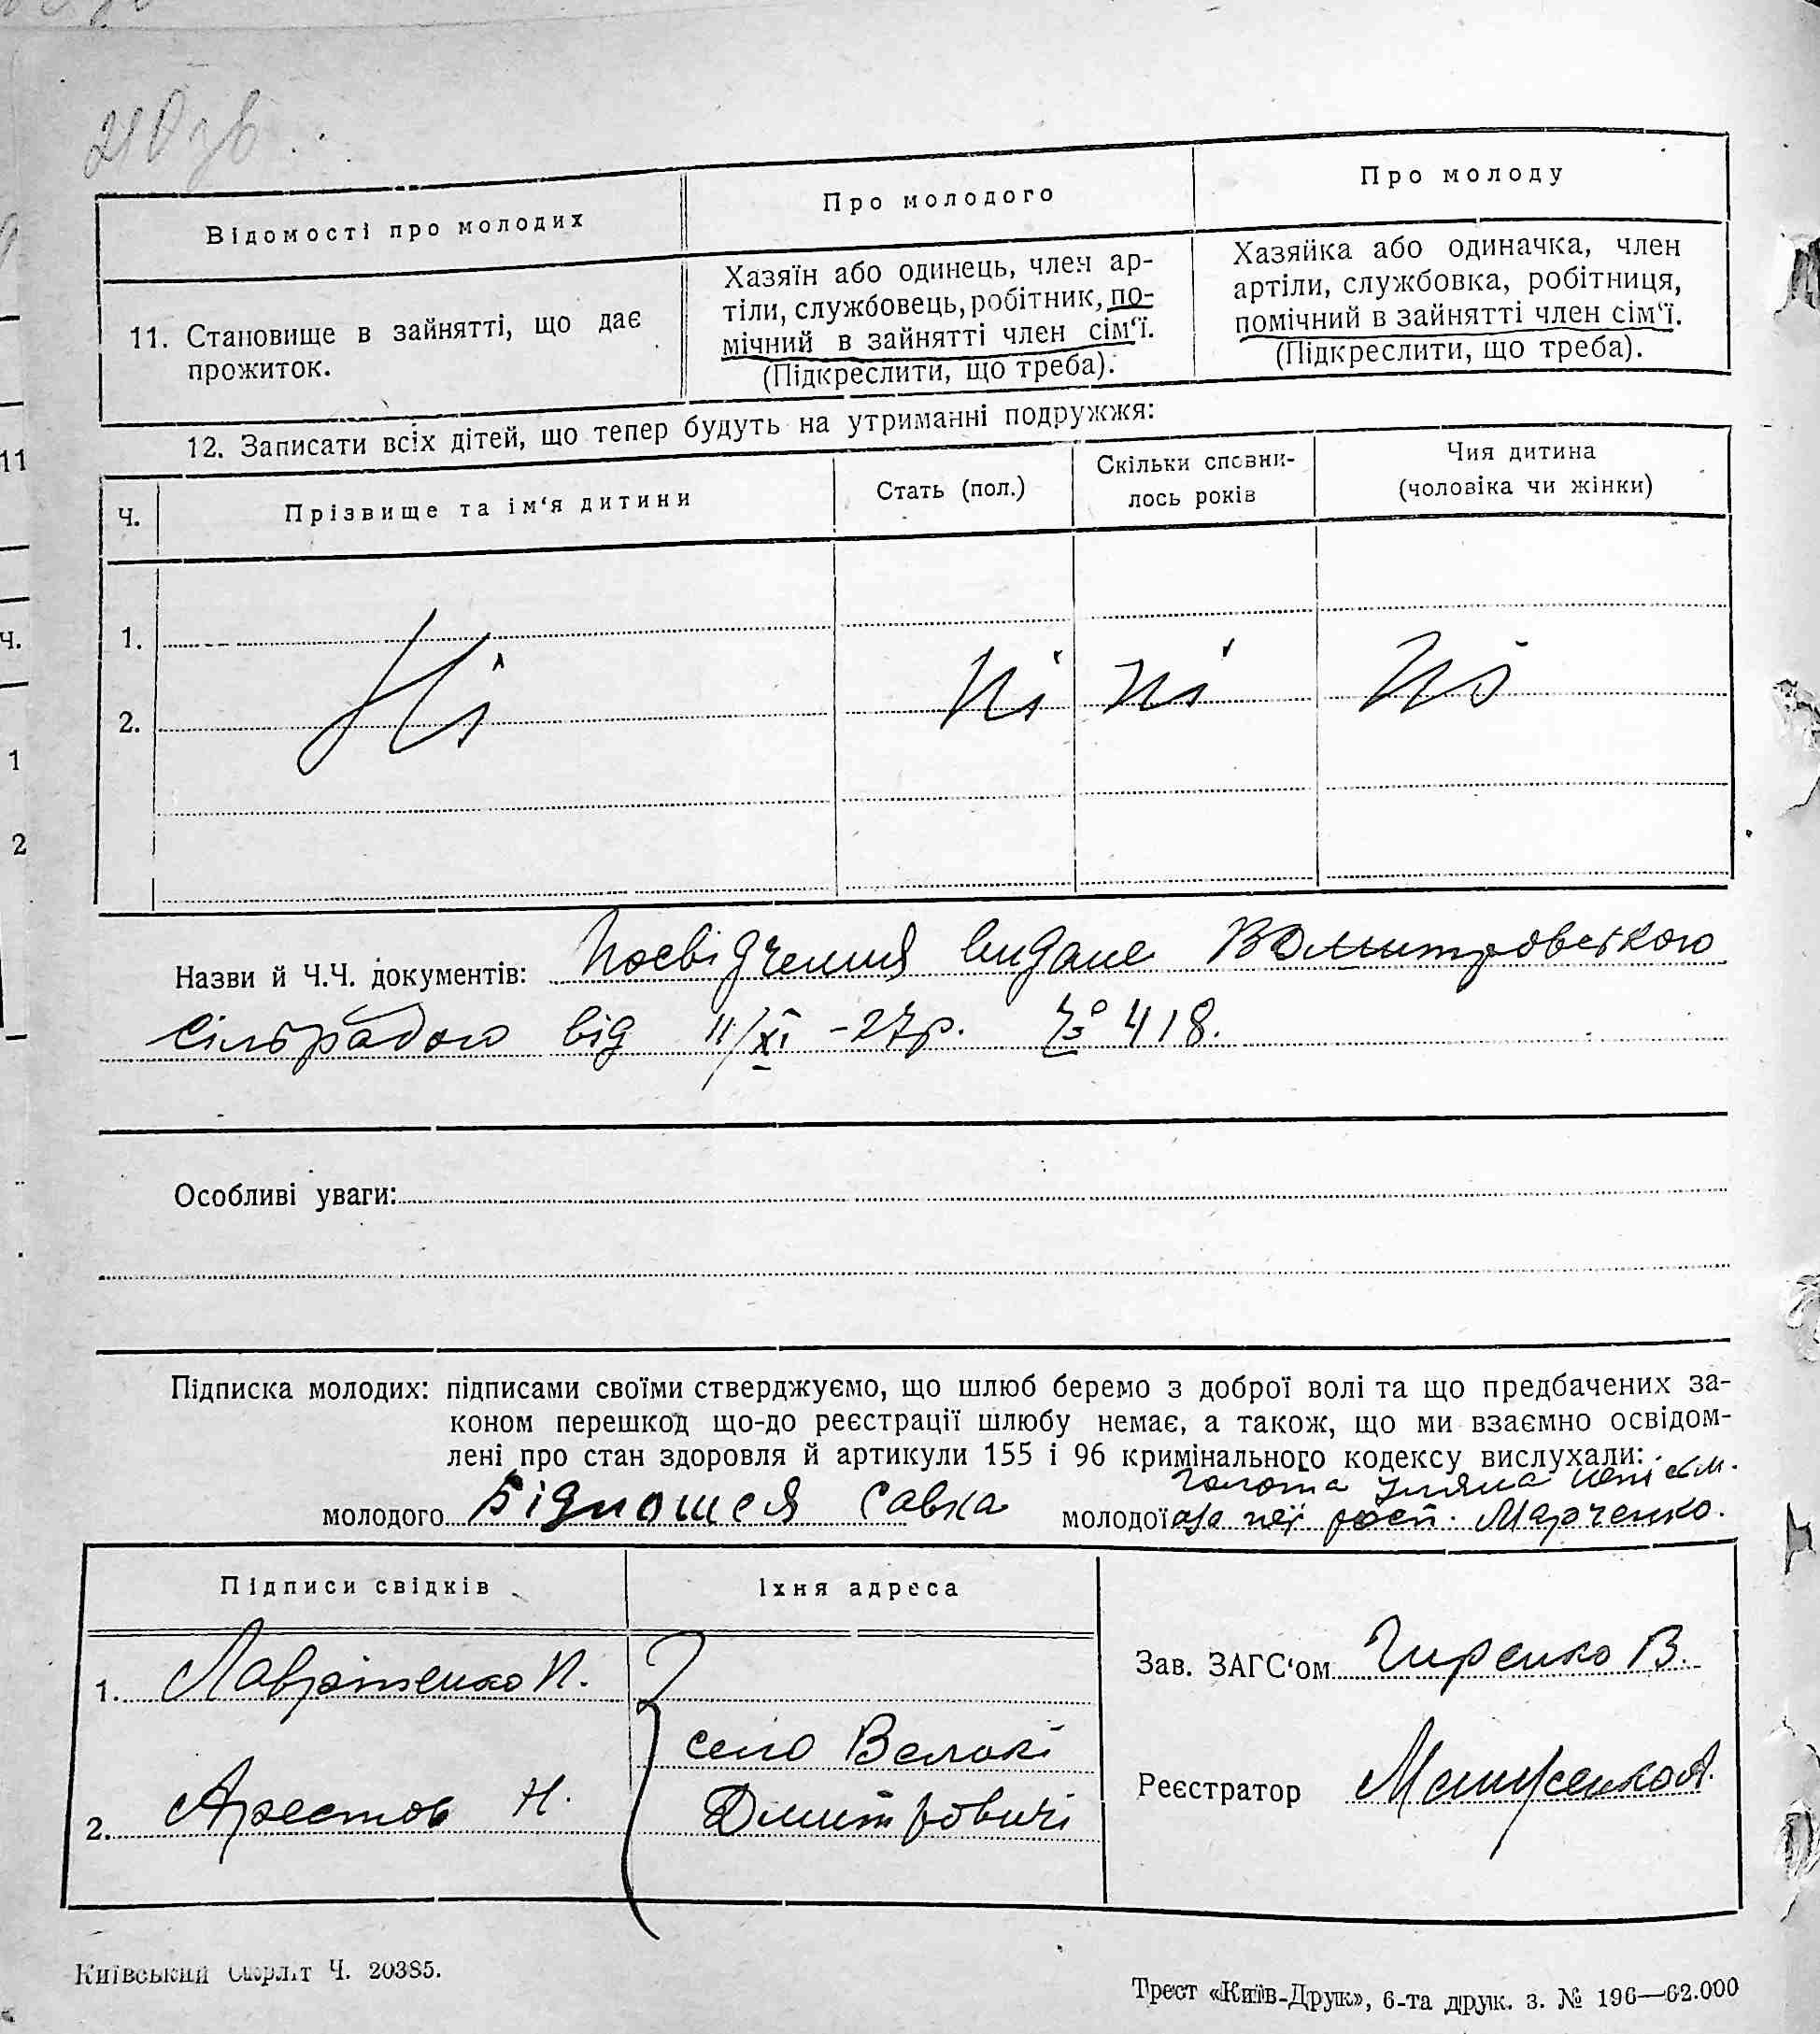 210 зв.
Відомості про молодих
Про молодого
Про молоду
11. Становище в зайнятті, що дає
прожиток.
Хазяїн або одинець, член ар-
тіли, службовець, робітник, по-
мічний в зайнятті член сім‘ї.
(Підкреслити, що треба).
Хазяйка або одиначка, член
артіли, службовка, робітниця,
помічний в зайнятті член сім‘ї.
(Підкреслити, що треба).
12. Записати всіх дітей, що тепер будуть на утриманні подружжя:
Ч.
Прізвище та ім‘я дитини
Стать (пол.)
Скільки сповни-
лось років
Чия дитина
(чоловіка чи жінки)
1.
2.
Ні ні ні ні
Назви й Ч.Ч. документів: Посвідчення видане ВДмитровською
сільрадою від 11/XI -27р. № 418.
Особливі уваги:
Підписка молодих: підписами своїми стверджуємо, що шлюб беремо з доброї волі та що предбачених за-
коном перешкод що-до реєстрації шлюбу немає, а також, що ми взаємно освідом-
лені про стан здоровля й артикули 155 і 96 кримінального кодексу вислухали:
Голота Уляна
молодого Бідношея Савка
молодої за неї росп. Марченко.
Підписи свідків
Їхня адреса
1. Лавріненко П.
2. Арестов Н.
село Великі
Дмитровичі
Зав. ЗАГС‘ом Гиренко В.
Реєстратор
Київський Окрліт Ч. 20385.
Трест «Київ-Друк», 6-та друк. з. № 196—62.000
11
Ч.
1
2